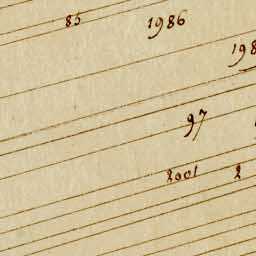 85 1986
198
97
2001 2